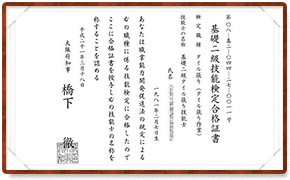 第〇八-基二-一〇四-二七-〇〇一一号
基礎二級技能検定合格証書
検定職種 タイル張り(タイル張り作業)
技能士の名称 基礎二級タイル張り技能士
氏名
一九八一年二月七日生
あなたは職業能力開発促進法の規定による
右の職種に係る技能検定に合格したので
ここに合格証書を授与し右の技能士の名称を
称することを認める
平成二十一年三月十八日
大阪府知事
橋下 徹